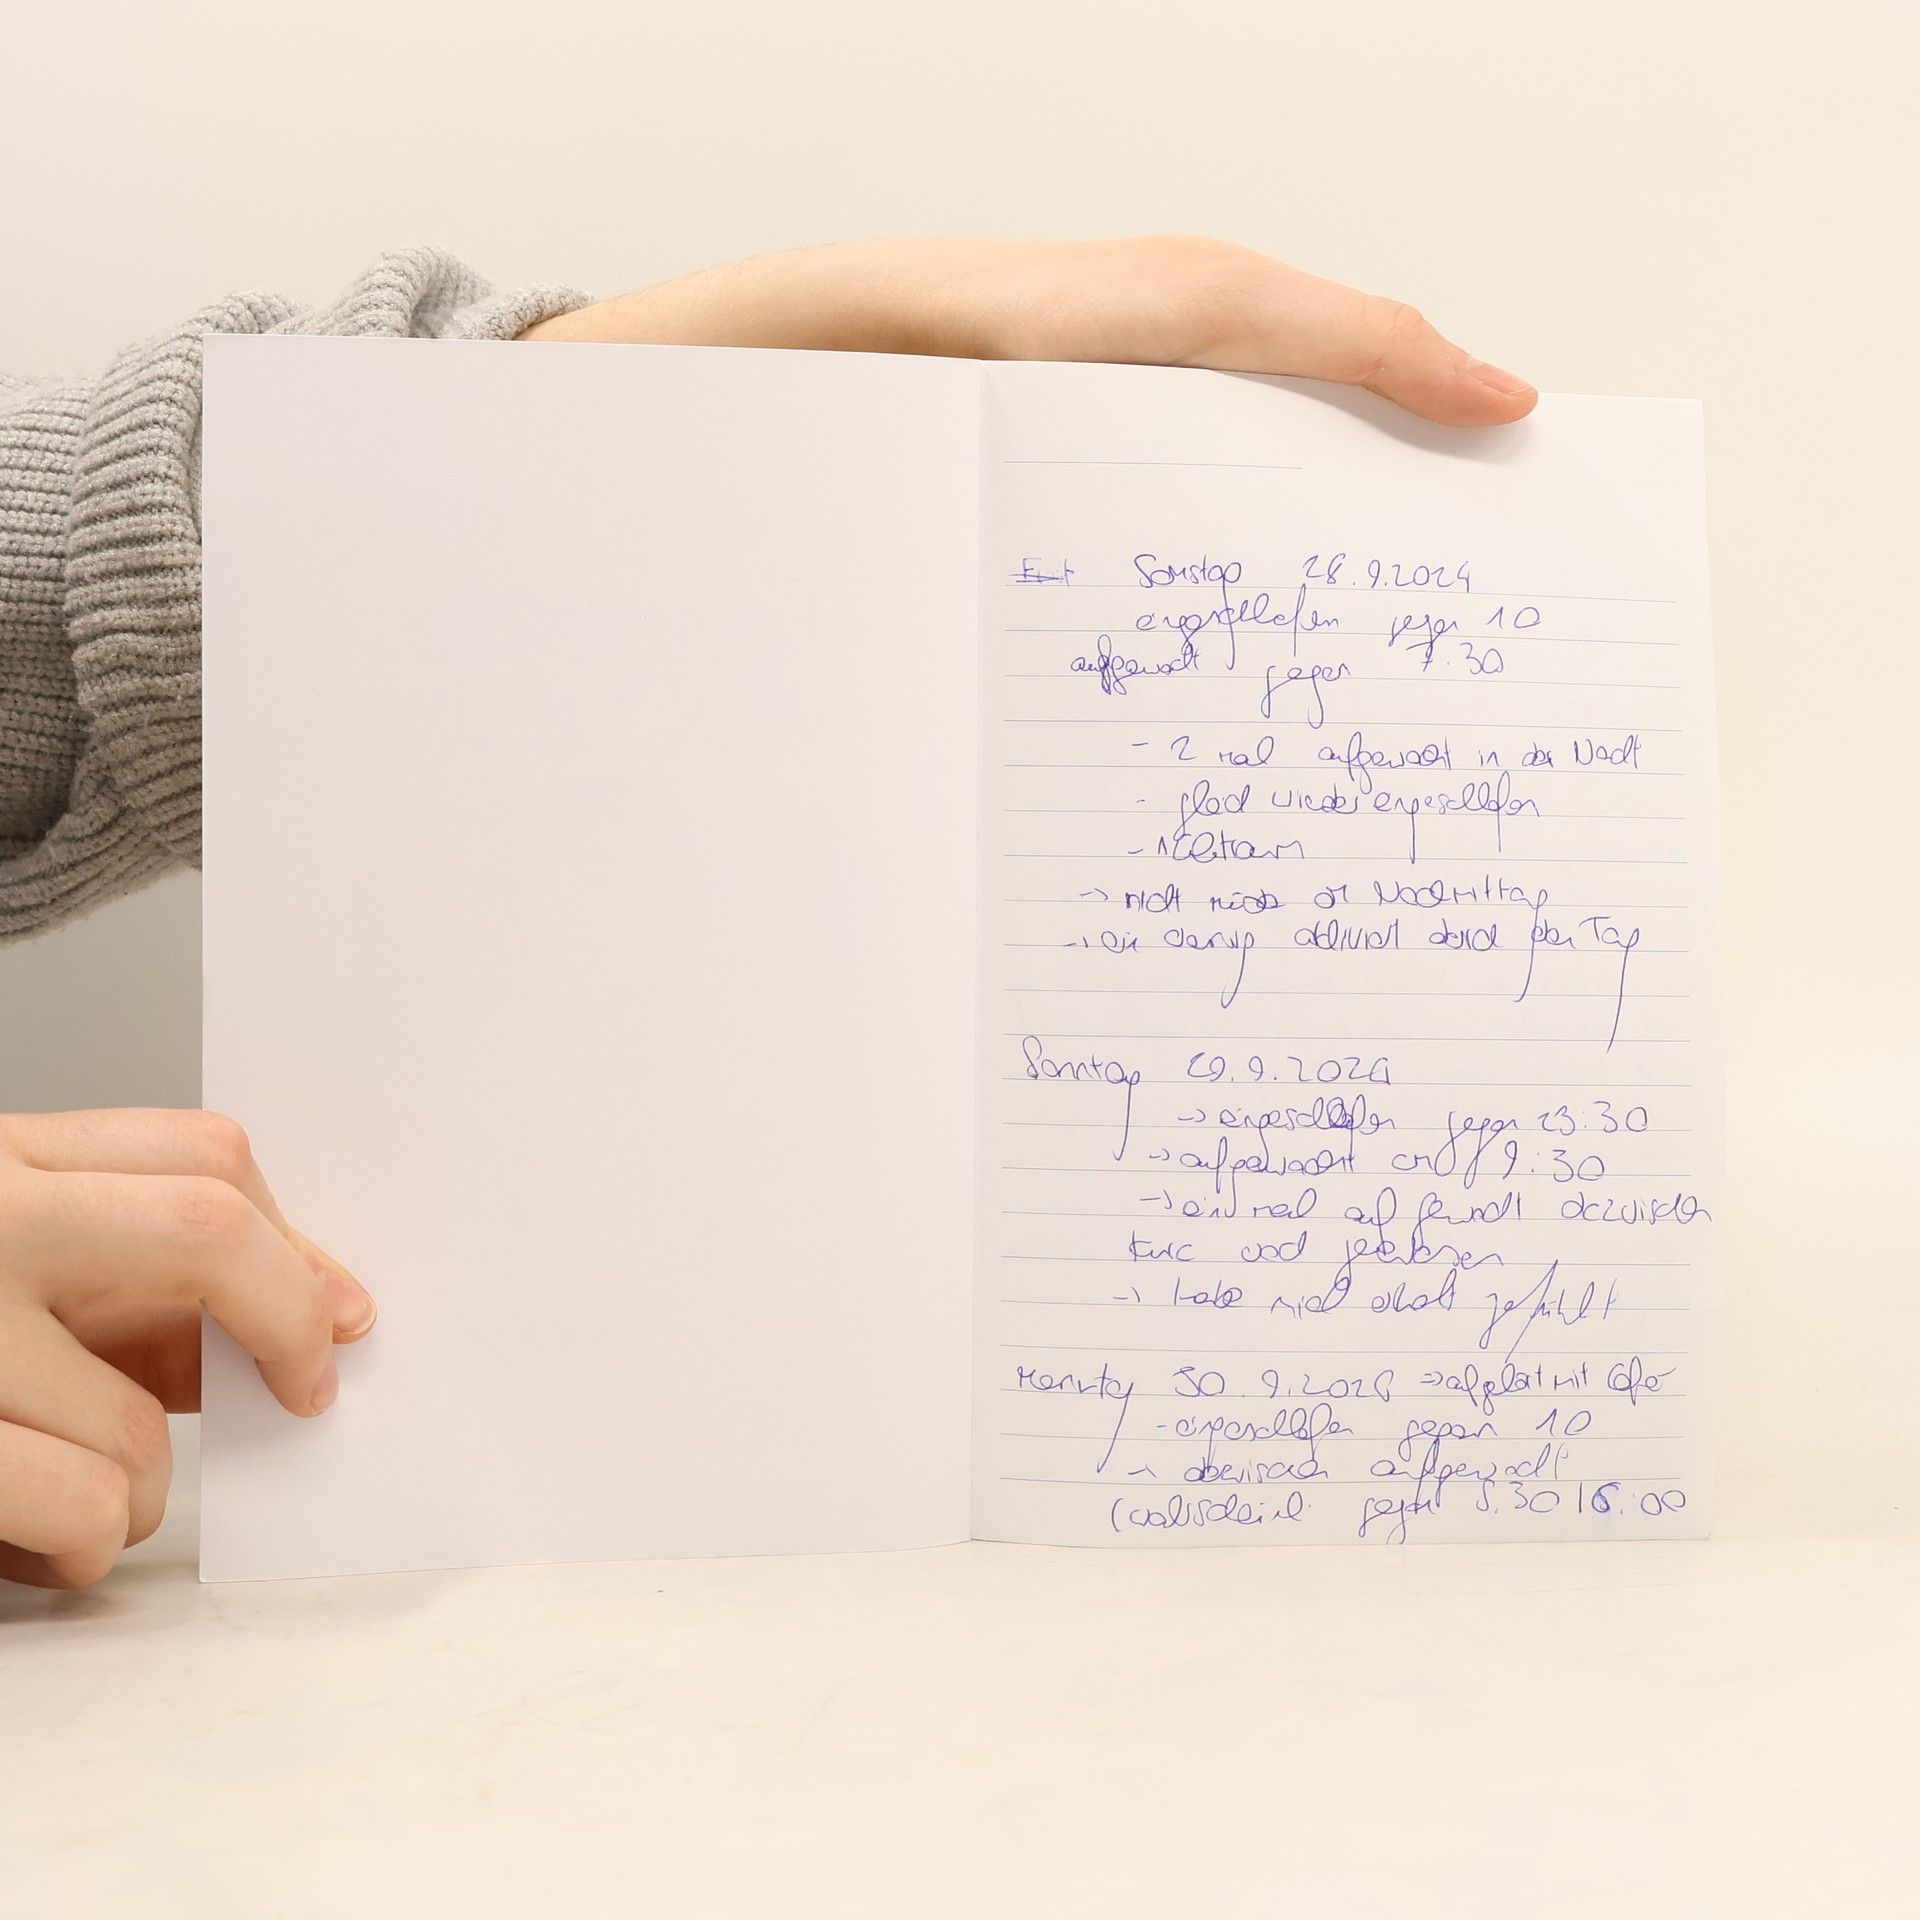 Samstag 28.9.2024
eingeschlafen gegen 10
aufgewacht gegen 7:30
- 2 mal aufgewacht in der Nacht
- gleich wieder eingeschlafen
-
→ nicht müde am Nachmittag
→ ein wenig durch den Tag
Sonntag 29.9.2024
→ eingeschlafen gegen 23:30
→ aufgewacht um 9:30
→ ein mal aufgewacht dazwischen
kurz und gelesen
→ habe mich erholt gefühlt
Montag 30.9.2024 → mit
- eingeschlafen gegen 10
→ dazwischen aufgewacht
(wahrscheinl. gegen 5:30 / 6:00